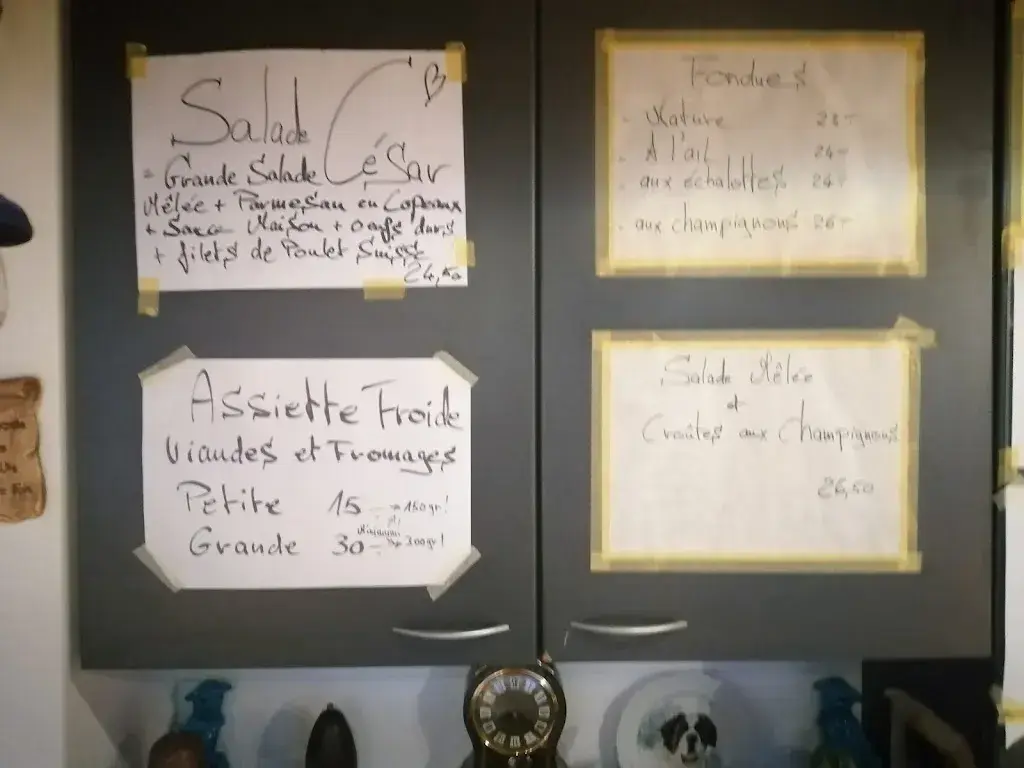 Salade César
= Grande Salade
Mêlée + Parmesan en Copeaux
+ Sauce Maison + oeufs durs
+ filets de Poulet Suisse
24,50
Assiette Froide
Viandes et Fromages
Petite 15.- → 150gr!
Minimum
Grande 30.- → 300gr!
Fondues
- Nature 23.-
- A l'ail 24.-
- aux échalottes 24.-
- aux champignons 26.-
Salade Mêlée
et
Croûtes aux Champignons
26,50